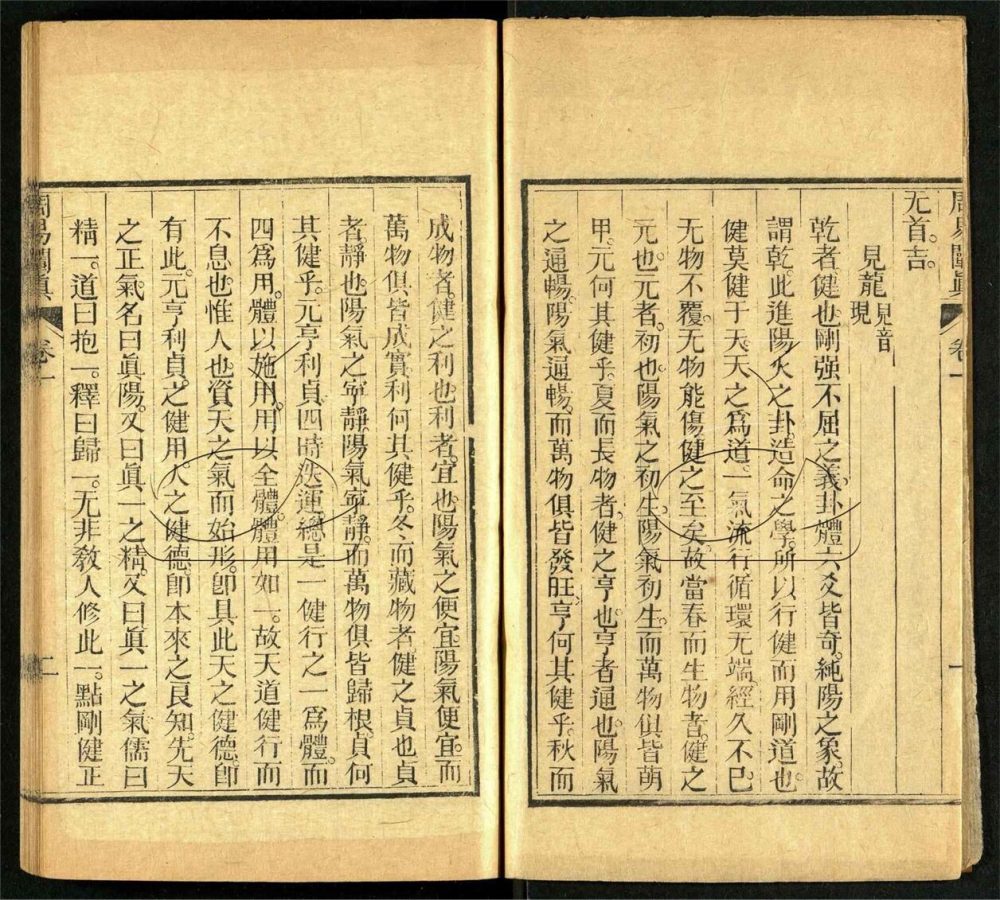 周易闡真 卷一 一
无首。吉。
見龍 見音現
乾者。健也。剛强不屈之義。卦體六爻皆奇。純陽之象。故
謂乾。此進陽火之卦。造命之學。所以行健而用剛道也。
健莫健于天。天之爲道。一氣流行。循環无端。經久不已。
无物不覆。无物能傷。健之至矣。故當春而生物者。健之
元也。元者。初也。陽氣之初生。陽氣初生。而萬物俱皆萌
甲。元何其健乎。夏而長物者。健之亨也。亨者通也。陽氣
之通暢。陽氣通暢。而萬物俱皆發旺。亨何其健乎。秋而
成物者。健之利也。利者。宜也。陽氣之便宜。陽氣便宜。而
萬物俱皆成實。利何其健乎。冬而藏物者。健之貞也。貞
者。靜也。陽氣之寧靜。陽氣寧靜。而萬物俱皆歸根。貞何
其健乎。元亨利貞。四時迭運。總是一健行之。一爲體。而
四爲用。體以施用。用以全體。體用如一。故天道健行而
不息也。惟人也。資天之氣而始形。卽具此天之健德。卽
有此元亨利貞之健用。人之健德。卽本來之良知。先天
之正氣。名曰眞陽。又曰眞一之精。又曰眞一之氣。儒曰
精一。道曰抱一。釋曰歸一。无非敎人修此一點剛健正
周易闡眞 卷一 二